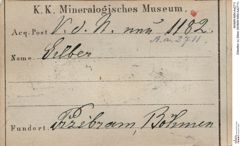 K. K. Mineralogisches Museum.
Acq. Post V. d. N. 1182.
A.a. 2711
Name Silber
Fundort Přibram, Böhmen